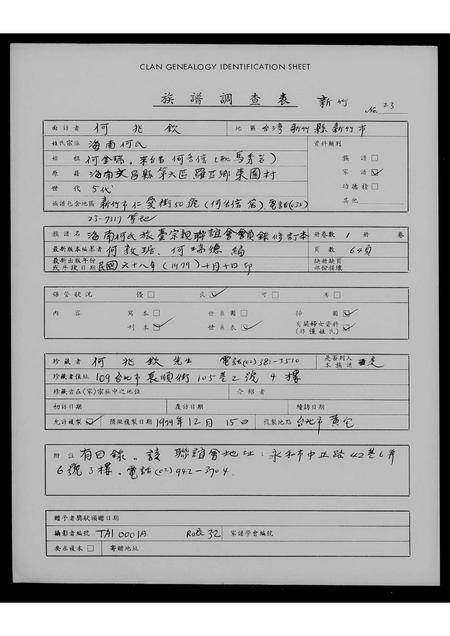 CLAN GENEALOGY IDENTIFICATION SHEET
族譜調查表 新竹 No. 23
面訪者 何兆欽 地區 台灣新竹縣新竹市
姓氏宗派 海南何氏 資料類別
始祖 何金瑞。來台者何君信(配馬房吉) 族譜□
原籍 海南文昌縣第六區羅豆鄉東園村 家譜☑
世代 5代 功德榜□
族譜包含地區 新竹市仁愛街50號 電話(035) 其他
23-7117等地
族譜名 海南何氏旅臺宗親聯誼會會員錄修訂本 冊卷數 1 冊 卷
最新版本編纂者 何敦琚、何瑞德編 頁數 64頁
最新出版年份或年段日期 民國六十八年(1979)十月十日印 缺冊缺頁部份損壞
保管狀況 優□ 良☑ 可□ 劣□
內容 寫本□ 世系圖□ 排圖☑
刊本☑ 世系表☑ 有關婦女資料(非僅姓氏)☑
珍藏者 何兆欽先生 電話(02)381-3510 是否列入本族譜 是
珍藏者住址 109台北市長順街105巷2號4樓
珍藏者在(家)宗族中之地位 介紹者
初訪日期 產訪日期 續訪日期
允許複製☑ 預擬複製日期 1979年12月15日 複製地點 台北市黃宅
附註 有目錄。該聯誼會地址:永和市中正路42巷6弄
6號3樓。電話(02)942-3704.
贈予者獎狀頒贈日期
攝影者編號 TAI 0001A Roll 32 家譜學會編號
要求複本□ 寄贈地址